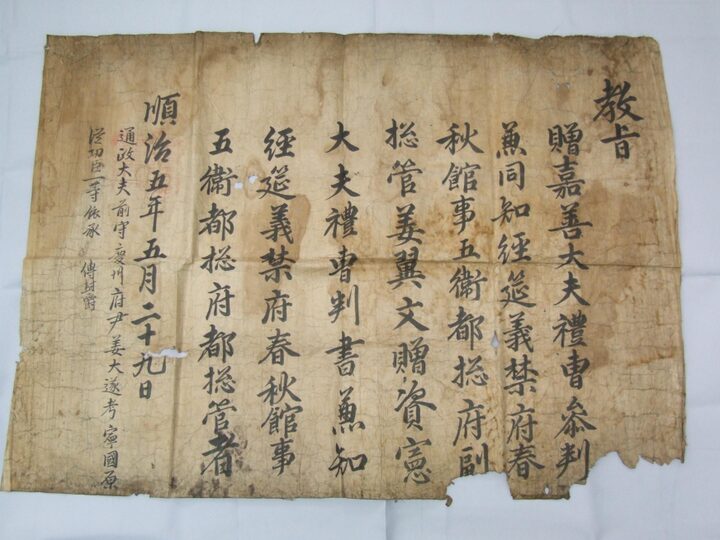 教旨
贈嘉善大夫禮曹叅判
兼同知經筵義禁府春
秋館事五衛都摠府副
摠管姜翼文贈資憲
大夫禮曹判書兼知
經筵義禁府春秋館事
五衛都摠府都摠管者
順治五年五月二十九日
通政大夫前守慶州府尹姜大遂考寧國原
從功臣一等依承 傳封爵